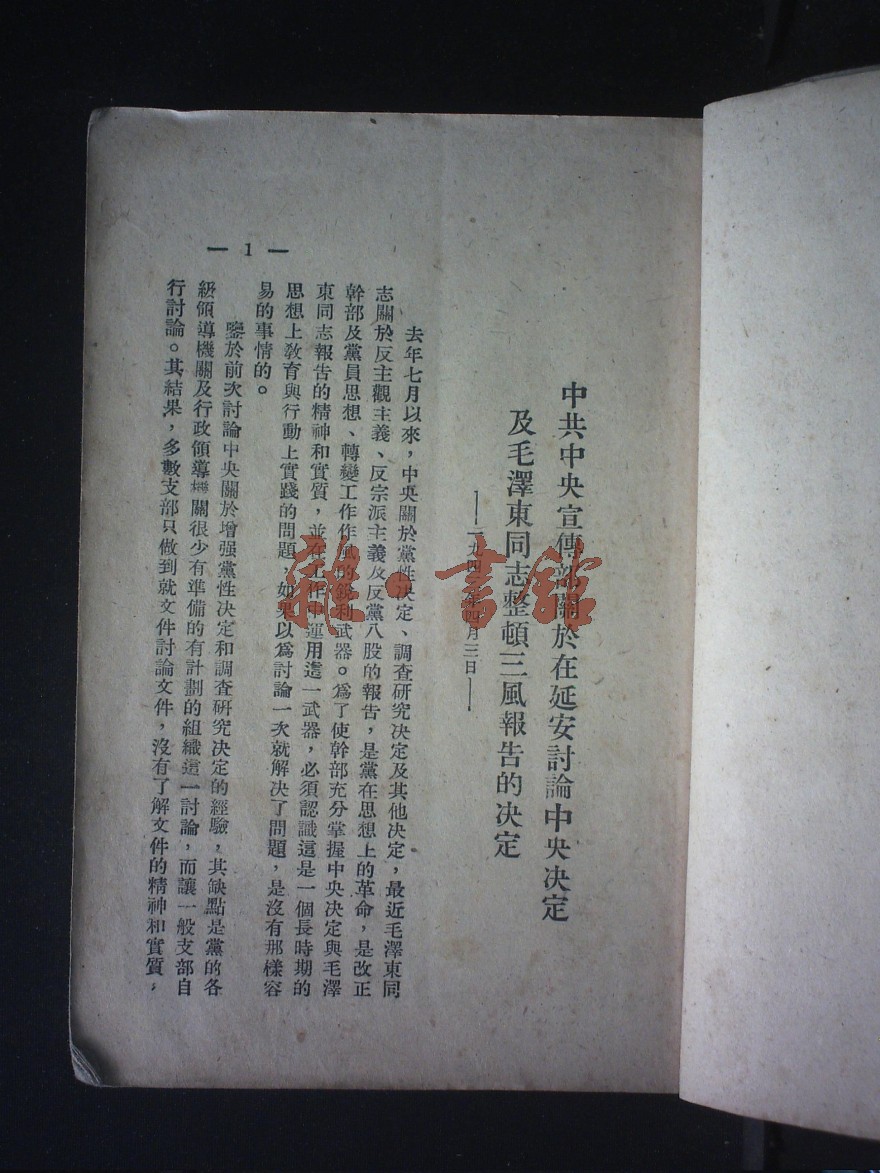 中共中央宣傳部關於在延安討論中央决定
及毛澤東同志整頓三風報告的决定
——一九四二年四月三日——
去年七月以來，中央關於黨性决定、調查研究决定及其他决定，最近毛澤東同
志關於反主觀主義、反宗派主義及反黨八股的報告，是黨在思想上的革命，是改正
幹部及黨員思想、轉變工作作風的銳利武器。爲了使幹部充分掌握中央决定與毛澤
東同志報告的精神和實質，並在工作中運用這一武器，必須認識這是一個長時期的
思想上敎育與行動上實踐的問題，如果以爲討論一次就解决了問題，是沒有那樣容
易的事情的。
鑒於前次討論中央關於增强黨性决定和調查研究决定的經驗，其缺點是黨的各
級領導機關及行政領導機關很少有準備的有計劃的組織這一討論，而讓一般支部自
行討論。其結果，多數支部只做到就文件討論文件，沒有了解文件的精神和實質，
— 1 —
雜·書館